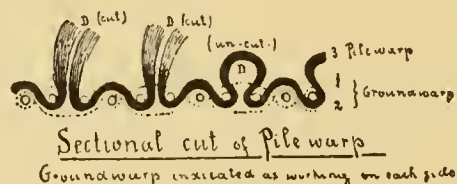 D (cut) D (cut)
(un-cut.)
D
3 Pilewarp
1
2 } Groundwarp
Sectional cut of Pile warp
Groundwarp indicated as working on each side